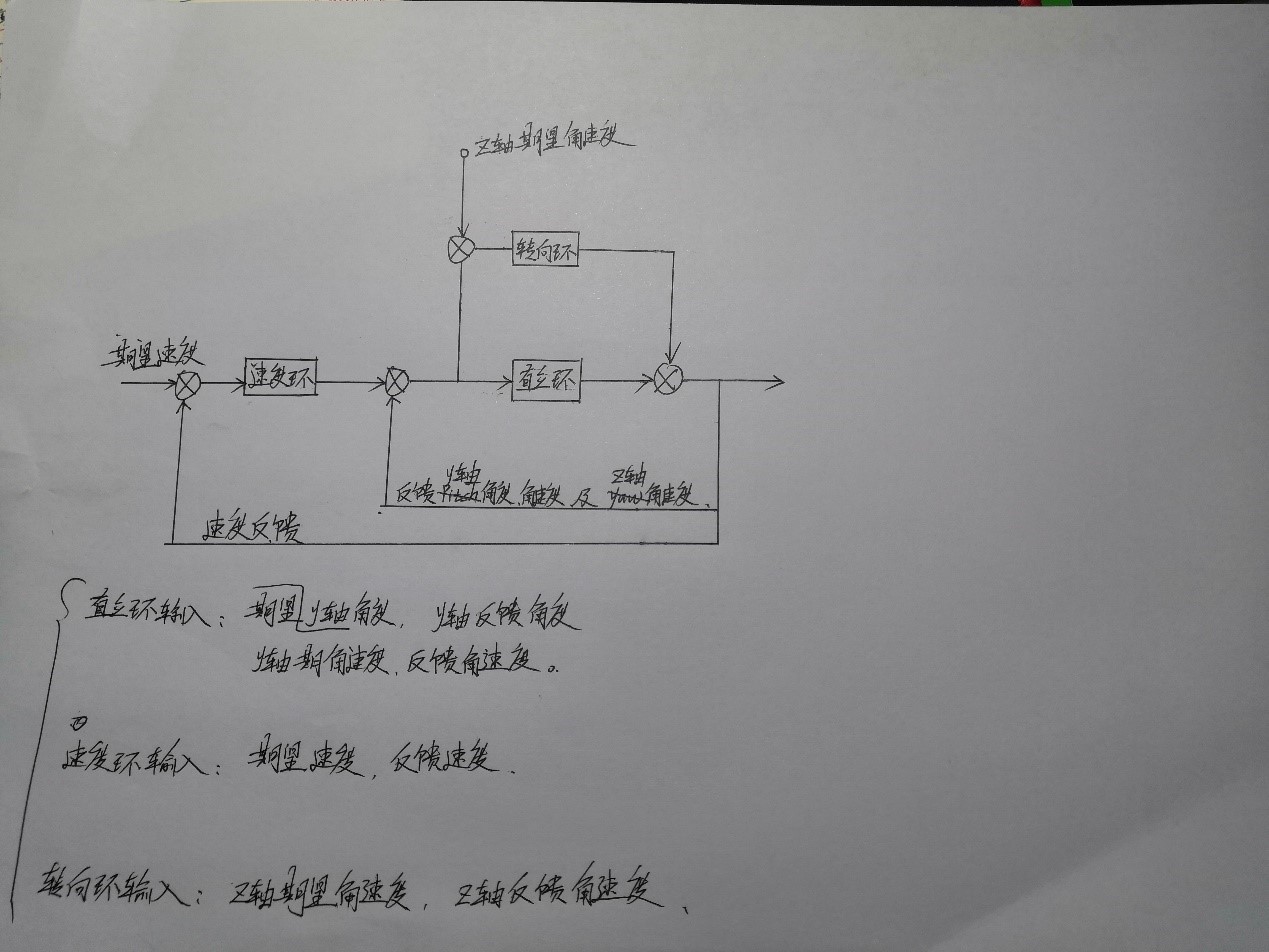 Z轴期望角速度
转向环
期望速度
速度环
直立环
y轴 Z轴
反馈Pitch角度、角速度 及 yaw角速度.
速度反馈
直立环输入: 期望y轴角度, y轴反馈角度
y轴期角速度, 反馈角速度。
速度环输入: 期望速度, 反馈速度.
转向环输入: Z轴期望角速度, Z轴反馈角速度、